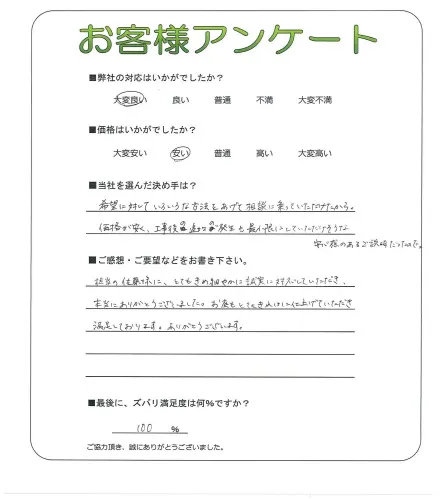 お客様アンケート
■弊社の対応はいかがでしたか？
大変良い 良い 普通 不満 大変不満
■価格はいかがでしたか？
大変安い 安い 普通 高い 大変高い
■当社を選んだ決め手は？
希望に対していろいろな方法をあげて相談に乗っていただけたから。
価格が安く、工事後の 発生も最小限にしていただけそうな
安心感のあるご説明だったので。
■ご感想・ご要望などをお書き下さい。
担当の佐藤様に、とてもきめ細やかに誠実に対応していただき、
本当にありがとうございました。お庭もとてもきれいに仕上げていただき
満足しております。ありがとうございます。
■最後に、ズバリ満足度は何%ですか？
100 %
ご協力頂き、誠にありがとうございました。